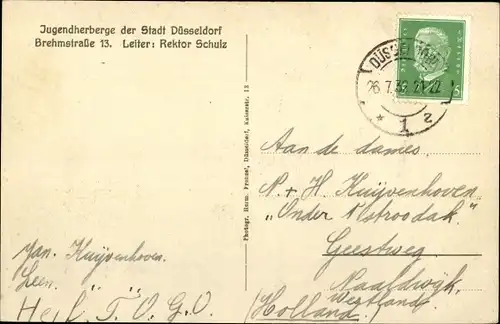 Jugendherberge der Stadt Düsseldorf
Brehmstraße 13. Leiter: Rektor Schulz
Photogr. Herm. Preisel, Düsseldorf, Kaiserstr. 12
26.7.32. 21-22
* 1 z
Aan de dames.
N. + H. Kuijvenhoven
„Onder 't Stroodak"
Geestweg.
Naaldwijk.
Westland
(Holland)
Jan. Kuijvenhoven.
Leen. " "
Heil T.O.G.O.